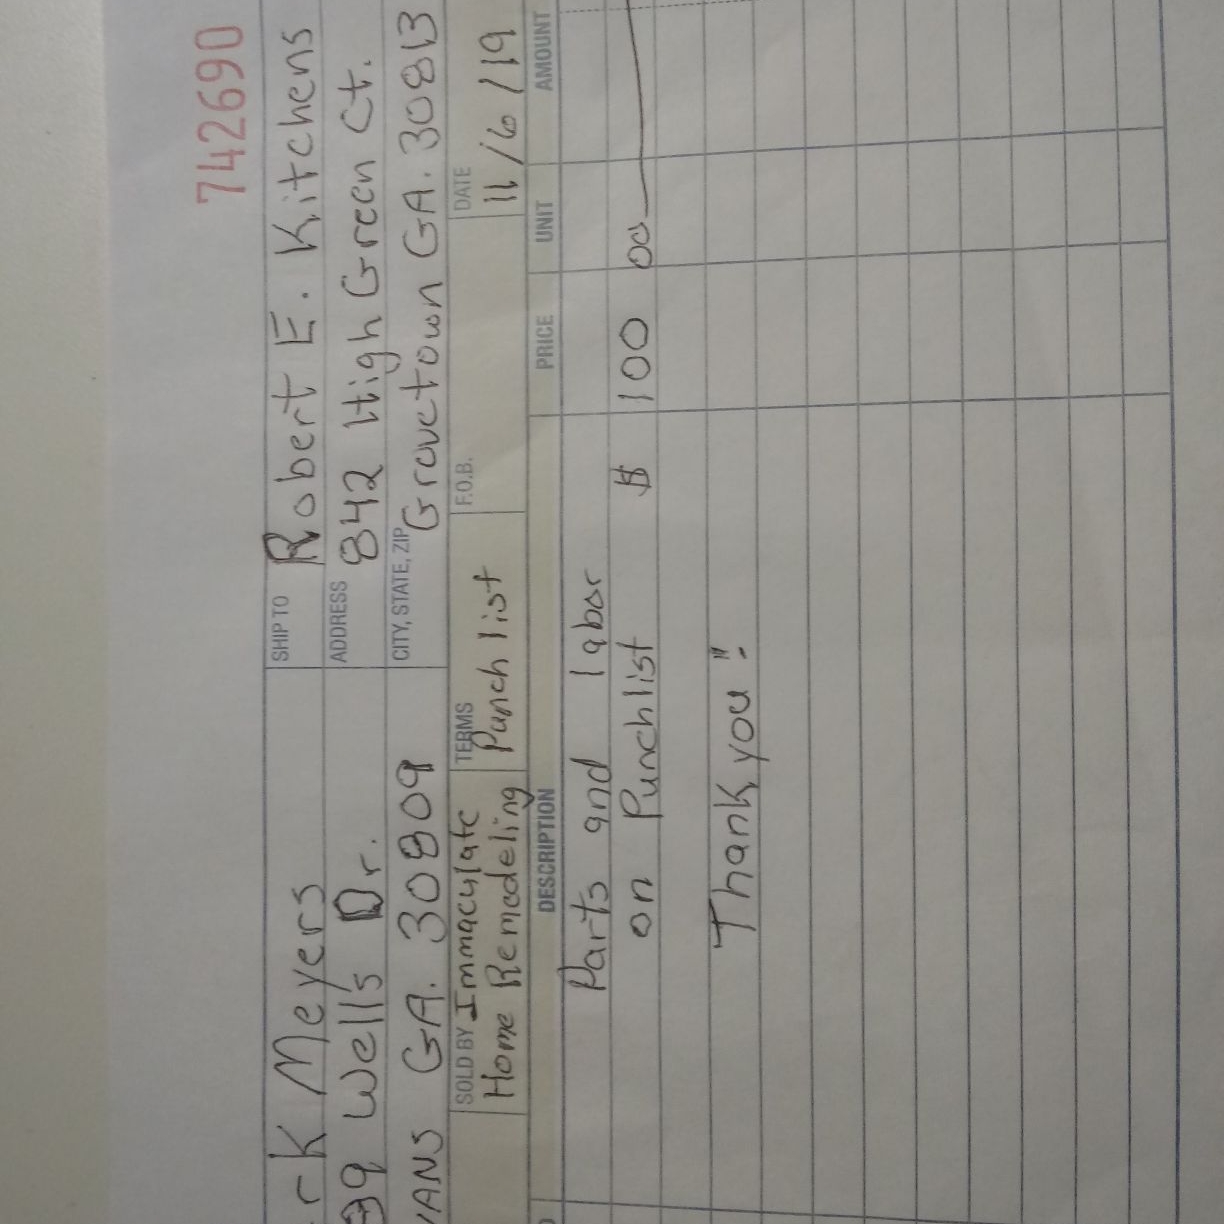 742690
SHIP TO Robert E. Kitchens
Meyers
ADDRESS 842 High Green Ct.
Wells Dr.
CITY, STATE, ZIP Grovetown GA. 30813
GA. 30809
SOLD BY Immaculate Home Remodeling
TERMS Punch list
F.O.B.
DATE 11/6/19
DESCRIPTION PRICE UNIT AMOUNT
Parts and labor
on Punchlist $ 100 00
Thank you!"